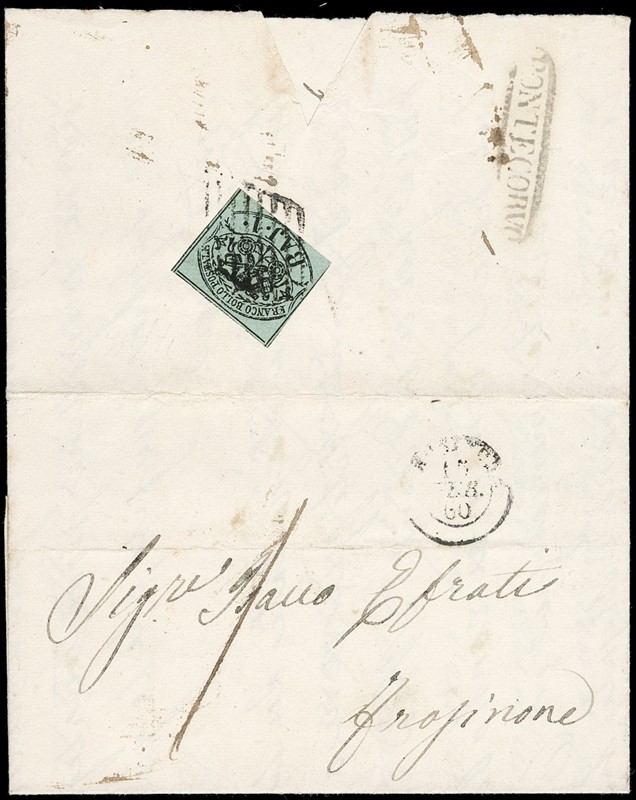 PONTECORVO
BAJ. 1.
FRANCO BOLLO POSTALE
FEB.
60
Sigre Isacco Efrati
Frosinone